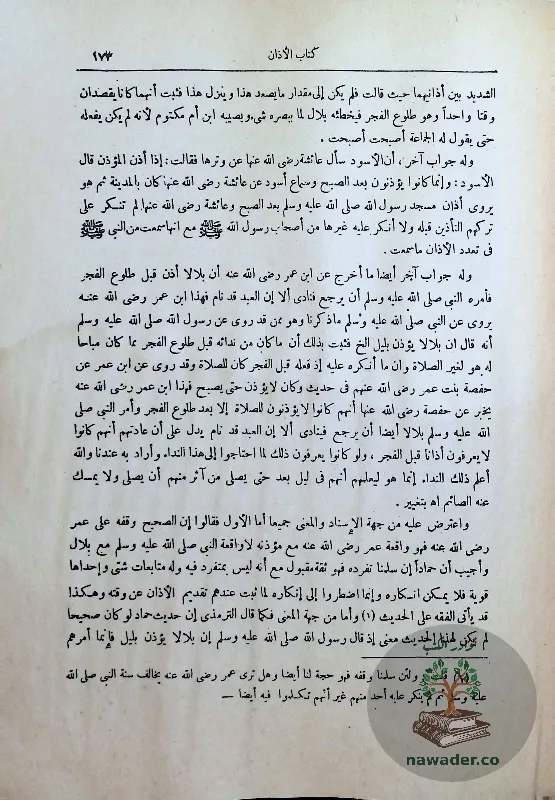 كتاب الأذان
١٧٣
الشديد بين أذانيهما حيث قالت فلم يكن إلى مقدار ما يصعد هذا وينزل هذا فثبت أنهما كانا يقصدان
وقتا واحداً وهو طلوع الفجر فيخطئه بلال لما ببصره شيء ويصيبه ابن أم مكتوم لأنه لم يكن يفعله
حتى يقول له الجماعة أصبحت أصبحت .
وله جواب آخر ، أن الأسود سأل عائشة رضى الله عنها عن وترها فقالت : إذا أذن المؤذن قال
الأسود : وإنما كانوا يؤذنون بعد الصبح وسماع أسود عن عائشة رضى الله عنها كان بالمدينة ثم هو
يروى أذان مسجد رسول الله صلى الله عليه وسلم بعد الصبح وعائشة رضى الله عنها لم تنكر على
تركهم التأذين قبله ولا أنكر عليه غيرها من أصحاب رسول الله ﷺ مع انها سمعت من النبي ﷺ
فى تعدد الأذان ما سمعت .
وله جواب آخر أيضا ما أخرج عن ابن عمر رضى الله عنه أن بلالا أذن قبل طلوع الفجر
فأمره النبي صلى الله عليه وسلم أن يرجع فنادى ألا إن العبد قد نام فهذا ابن عمر رضى الله عنه
يروى عن النبي صلى الله عليه وسلم ما ذكرنا وهو ممن قد روى عن رسول الله صلى الله عليه وسلم
أنه قال ان بلالا يؤذن بليل الخ فثبت بذلك أن ما كان من ندائه قبل طلوع الفجر مما كان مباحا
له هو لغير الصلاة وان ما أنكره عليه إذ فعله قبل الفجر كان للصلاة وقد روى عن ابن عمر عن
حفصة بنت عمر رضى الله عنهم فى حديث وكان لا يؤذن حتى يصبح فهذا ابن عمر رضى الله عنه
يخبر عن حفصة رضى الله عنها أنهم كانوا لا يؤذنون للصلاة إلا بعد طلوع الفجر وأمر النبي صلى
الله عليه وسلم بلالا أيضا أن يرجع فينادى ألا إن العبد قد نام يدل على أن عادتهم أنهم كانوا
لا يعرفون أذانا قبل الفجر ، ولو كانوا يعرفون ذلك لما احتاجوا إلى هذا النداء وأراد به عندنا والله
أعلم ذلك النداء إنما هو ليعلمهم أنهم فى ليل بعد حتى يصلى من آثر منهم أن يصلى ولا يمسك
عنه الصائم اه بتغيير .
واعترض عليه من جهة الإسناد والمعنى جميعا أما الأول فقالوا إن الصحيح وقفه على عمر
رضى الله عنه فهو واقعة عمر رضى الله عنه مع مؤذنه لا واقعة النبي صلى الله عليه وسلم مع بلال
وأجيب أن حماداً إن سلمنا تفرده فهو ثقة مقبول مع أنه ليس بمتفرد فيه وله متابعات شتى وإحداها
قوية فلا يمكن انكاره وإنما اضطروا إلى إنكاره لما ثبت عندهم تقديم الأذان عن وقته وهكذا
قد يأتى الفقه على الحديث (١) وأما من جهة المعنى فكما قال الترمذى إن حديث حماد لو كان صحيحا
لم يكن لهذا الحديث معنى إذ قال رسول الله صلى الله عليه وسلم إن بلالا يؤذن بليل فإنما أمرهم
ولئن سلمنا وقفه فهو حجة لنا أيضا وهل ترى عمر رضى الله عنه يخالف سنة النبي صلى الله
عليه وسلم ثم لم ينكر عليه أحد منهم غير أنهم تكلموا فيه أيضا —
nawader.co